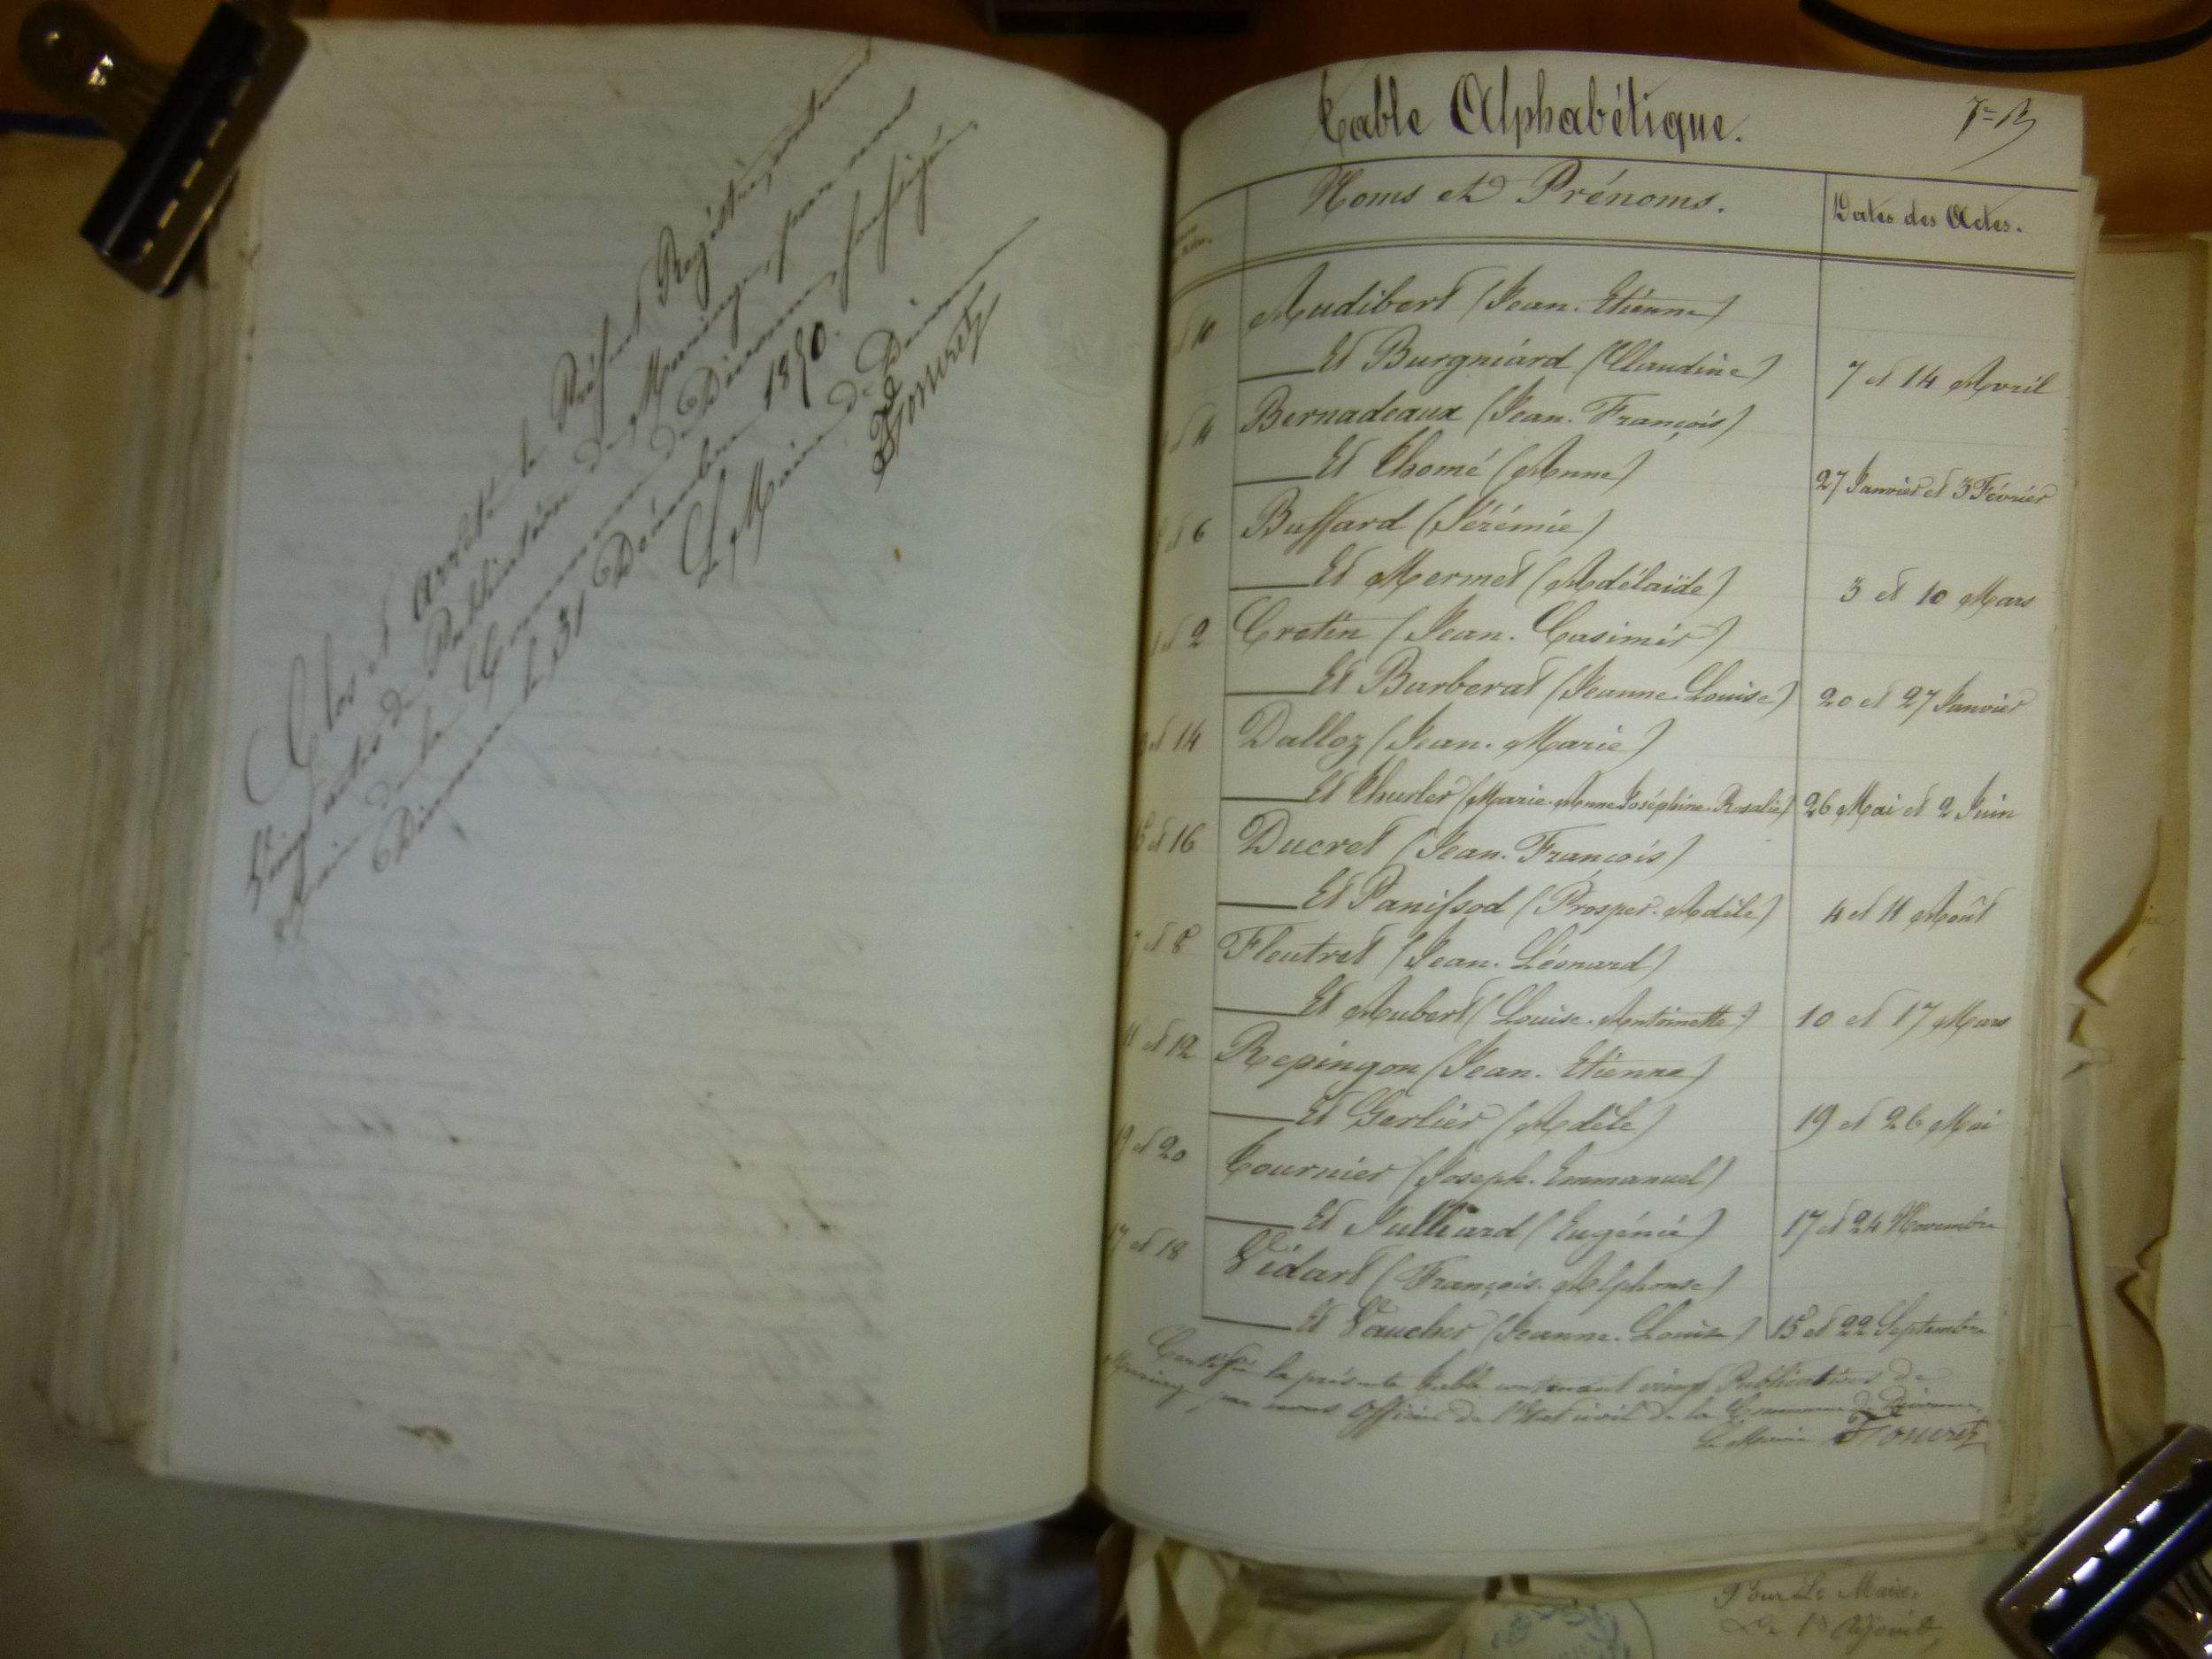 Clos et arrêté le Présent Registre, contenant
Vingt actes de Publication de Mariage, par nous
Maire de la Commune de Divonne, soussigné,
Divonne le 31 Décembre 1850.
Le Maire de Divonne
Fouretz
Table Alphabétique.
Noms et Prénoms.
Dates des Actes.
et 10 Audibert (Jean. Etienne)
Et Burgniard (Claudine) 7 et 14 Avril
et 4 Bernadeaux (Jean. François)
Et Thomé (Anne) 27 Janvier et 3 Février
et 6 Buffard (Jérémie)
Et Mermet (Adélaïde) 3 et 10 Mars
1 et 2 Cretin (Jean. Casimir)
Et Barberat (Jeanne. Louise) 20 et 27 Janvier
et 14 Dalloz (Jean. Marie)
Et Thurler (Marie. Anne Joséphine. Rosalie) 26 Mai et 2 Juin
15 et 16 Ducret (Jean. François)
Et Panissod (Prosper. Adèle) 4 et 11 Août
7 et 8 Fleutret (Jean. Léonard)
Et Aubert (Louise. Antoinette.) 10 et 17 Mars
11 et 12 Repingon (Jean. Etienne)
Et Gerlier (Adèle) 19 et 26 Mai
19 et 20 Tournier (Joseph. Emmanuel)
Et Julliard (Eugénie) 17 et 24 Novembre
17 et 18 Vidart (François. Alphonse)
Et Vaucher (Jeanne. Louise) 15 et 22 Septembre
Certifié la présente Table contenant vingt Publications de
Mariage, par nous Officier de l'Etat civil de la Commune de Divonne,
Le Maire Fouretz
Pour Le Maire,
Le 1er Adjoint,